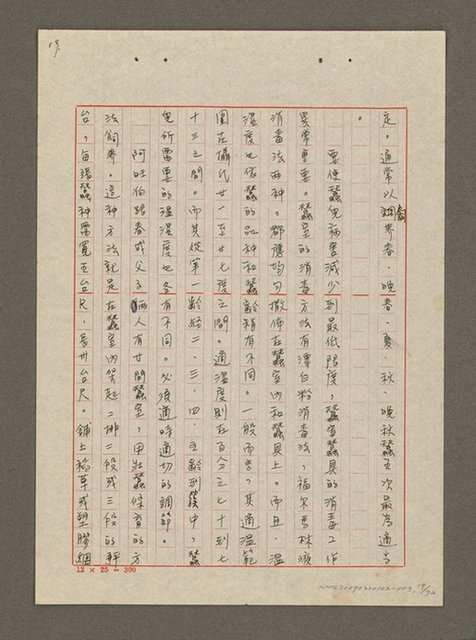 19.
定。通常以飼養春、晚春、夏、秋、晚秋蠶五次最為適当
。
要使蠶兒病害減少到最低限度，蠶室蠶具的消毒工作
異常重要。蠶室的消毒方法有漂白粉消毒法，福尔馬林液
消毒法兩种。都應均勻撒佈在蠶室內和蠶具上。而且，温
湿度也依蠶的品种和蠶齡稍有不同。一般而言，其適温範
圍在攝氏廿一至廿七度之間。適湿度則在百分之七十到七
十三之間。而其從第一齡經二、三、四、五齡到簇中，蠶
兒所需要的温湿度也各有不同。必須適時適切的調節。
阿旺伯跟春成父子倆人有廿間蠶室，用壯蠶條育的方
法飼養。這种方法就是在蠶室內架起二排二段或三段的幹
台，每張蠶种需寬五台尺、長卅台尺。鋪上稻草或塑膠網
12 × 25 = 300
19/32